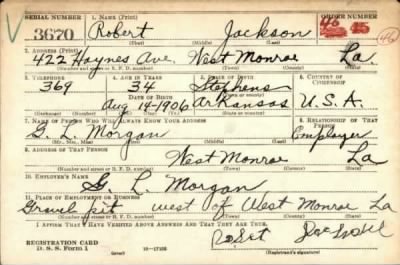 SERIAL NUMBER 1. NAME (Print) ORDER NUMBER
3670 Robert Jackson 46 45
(First) (Middle) (Last)
2. ADDRESS (Print)
422 Haynes Ave. West Monroe La.
(Number and street or R. F. D. number) (Town) (County) (State)
3. TELEPHONE 4. AGE IN YEARS 5. PLACE OF BIRTH 6. COUNTRY OF CITIZENSHIP
369 34 Stephens
DATE OF BIRTH
Aug 14-1906 Arkansas U.S.A.
7. NAME OF PERSON WHO WILL ALWAYS KNOW YOUR ADDRESS 8. RELATIONSHIP OF THAT PERSON
G. L. Morgan Employer
(Mr., Mrs., Miss) (First) (Middle) (Last)
9. ADDRESS OF THAT PERSON
West Monroe La
(Number and street or R. F. D. number) (Town) (County) (State)
10. EMPLOYER'S NAME
G. L. Morgan
11. PLACE OF EMPLOYMENT OR BUSINESS
Gravel pit west of West Monroe La
(Number and street or R. F. D. number) (Town) (County) (State)
I AFFIRM THAT I HAVE VERIFIED ABOVE ANSWERS AND THAT THEY ARE TRUE.
REGISTRATION CARD
D. S. S. Form 1 (over) (Registrant's signature)